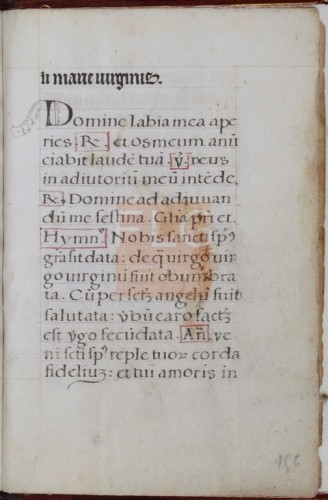 ti marie virginis.
Domine labia mea ape
ries. R. et os meum anũ
ciabit laudẽ tuã. V. Deus
in adiutoriũ meũ intẽde.
R. Domine ad adiuvan
dũ me festina. Glia pri et.
Hymnꝰ. Nobis sancti spũs
gra sit data: de q̃ virgo vir
go virginũ fuit obumbra
ta. Cũ per sctũ angelũ fuit
salutata: vbũ caro factũ
est vgo fecũdata. Añ. ve
ni scti spũs reple tuoꝝ corda
fideliuꝫ: et tui amoris in
156